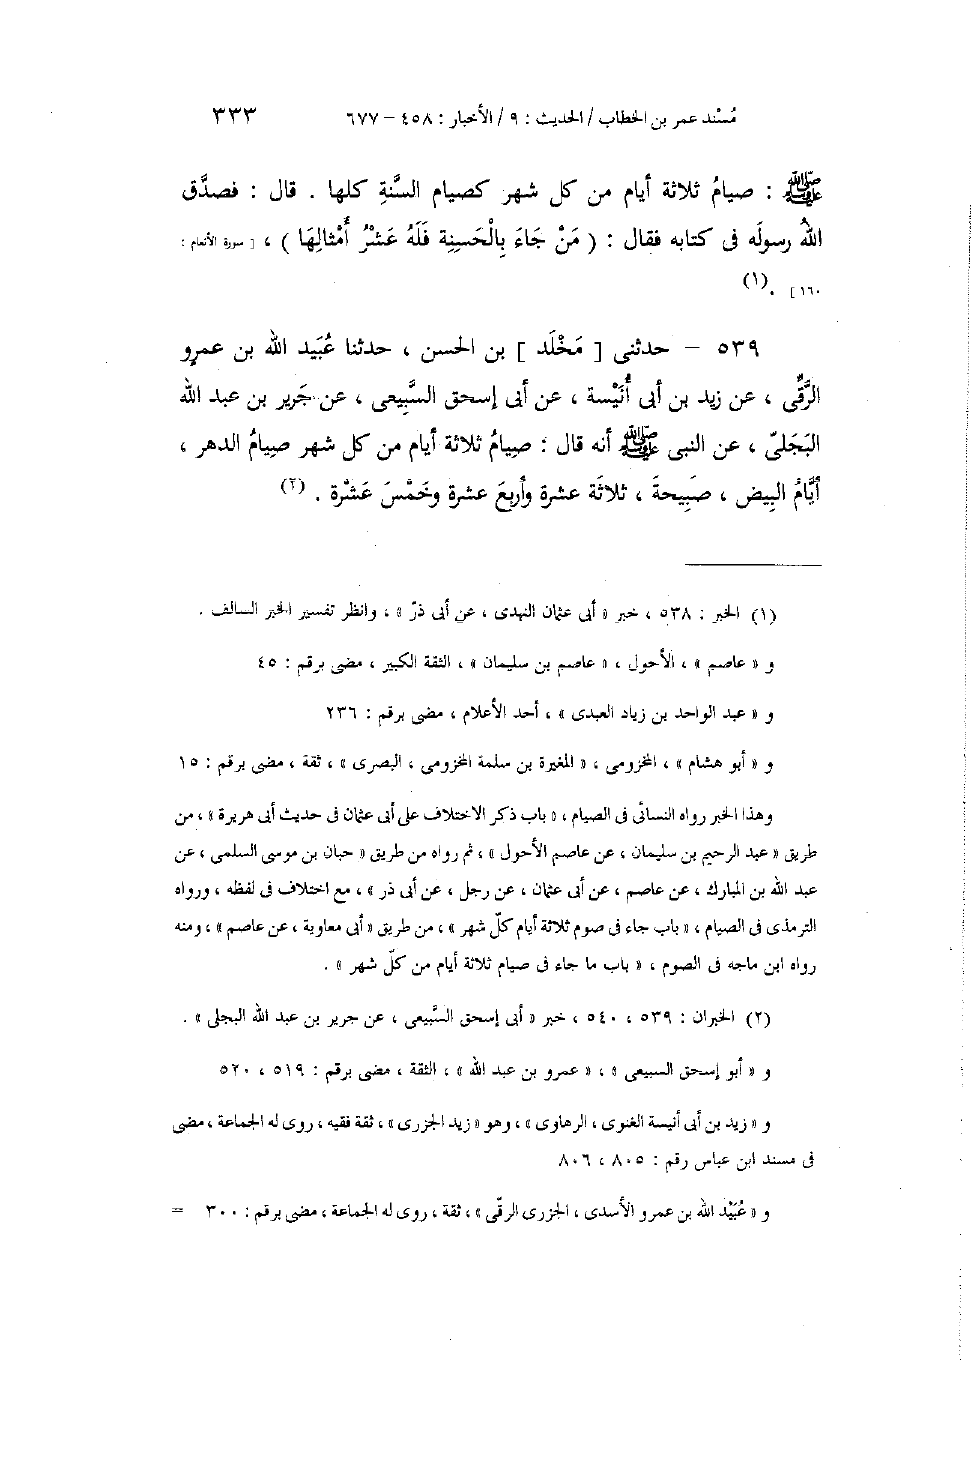 مُسْند عمر بن الخطاب / الحديث : ٩ / الأخبار : ٤٥٨ – ٦٧٧ ٣٣٣
ﷺ : صيامُ ثلاثة أيام من كل شهر كصيام السَّنةِ كلها . قال : فصدَّق
اللهُ رسولَه فى كتابه فقال : ( مَنْ جَاءَ بِالْحَسنِةِ فَلَهُ عَشْرُ أَمْثالِهَا ) ، [ سورة الأنعام :
١٦٠ ] . (١)
٥٣٩ – حدثنى [ مَخْلَد ] بن الحسن ، حدثنا عُبَيد الله بن عمرٍو
الرَّقِّى ، عن زيد بن أبى أُنَيْسة ، عن أبى إسحق السَّبِيعى ، عن جَرير بن عبد الله
البَجَلىّ ، عن النبى ﷺ أنه قال : صيامُ ثلاثة أيام من كل شهر صيامُ الدهر ،
أيَّامُ البِيض ، صَبِيحةَ ، ثلاثَة عشرة وأربعَ عشرة وخَمْسَ عَشْرة . (٢)
(١) الخبر : ٥٣٨ ، خبر « أبى عثمان النهدى ، عن أبى ذرّ » ، وانظر تفسير الخبر السالف .
و « عاصم » ، الأحول ، « عاصم بن سليمان » ، الثقة الكبير ، مضى برقم : ٤٥
و « عبد الواحد بن زياد العبدى » ، أحد الأعلام ، مضى برقم : ٢٣٦
و « أبو هشام » ، المخزومى ، « المغيرة بن سلمة المخزومى ، البصرى » ، ثقة ، مضى برقم : ١٥
وهذا الخبر رواه النسائى فى الصيام ، « باب ذكر الاختلاف على أبى عثمان فى حديث أبى هريرة » ، من
طريق « عبد الرحيم بن سليمان ، عن عاصم الأحول » ، ثم رواه من طريق « حبان بن موسى السلمى ، عن
عبد الله بن المبارك ، عن عاصم ، عن أبى عثمان ، عن رجل ، عن أبى ذر » ، مع اختلاف فى لفظه ، ورواه
الترمذى فى الصيام ، « باب جاء فى صوم ثلاثة أيام كلّ شهر » ، من طريق « أبى معاوية ، عن عاصم » ، ومنه
رواه ابن ماجه فى الصوم ، « باب ما جاء فى صيام ثلاثة أيام من كلّ شهر » .
(٢) الخبران : ٥٣٩ ، ٥٤٠ ، خبر « أبى إسحق السَّبيعى ، عن جرير بن عبد الله البجلى » .
و « أبو إسحق السبيعى » ، « عمرو بن عبد الله » ، الثقة ، مضى برقم : ٥١٩ ، ٥٢٠
و « زيد بن أبى أنيسة الغنوى ، الرهاوى » ، وهو « زيد الجزرى » ، ثقة فقيه ، روى له الجماعة ، مضى
فى مسند ابن عباس رقم : ٨٠٥ ، ٨٠٦
و « عُبَيْد الله بن عمرو الأسدى ، الجزرى الرقّى » ، ثقة ، روى له الجماعة ، مضى برقم : ٣٠٠ =